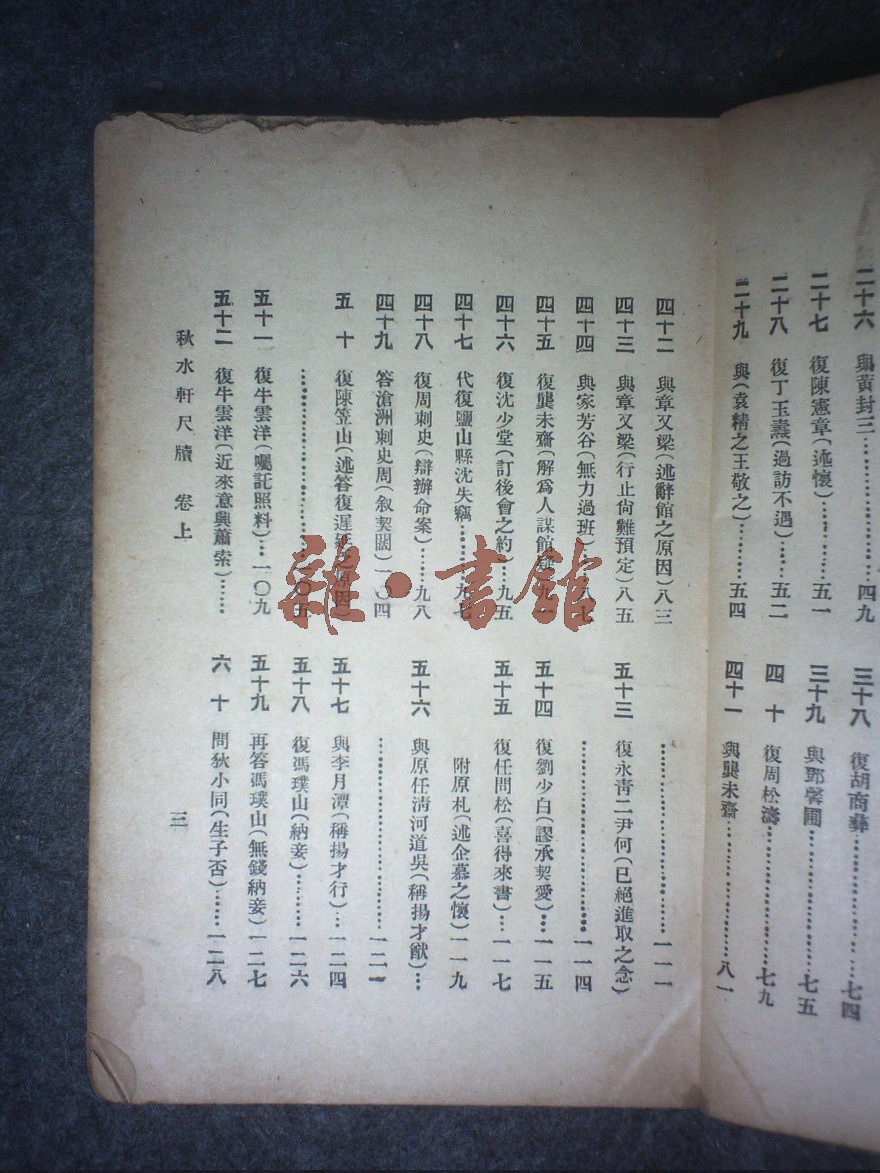 二十六　與黃封三…………四九
二十七　復陳憲章(述懷)………五一
二十八　復丁玉燾(過訪不遇)……五二
二十九　與(袁精之王敬之)………五四
三十八　復胡商彝…………七四
三十九　與鄧馨圃…………七五
四十　復周松濤…………七九
四十一　與龔未齋…………八一
四十二　與章又梁(述辭館之原因)八三
四十三　與章又梁(行止尙難預定)八五
四十四　與家芳谷(無力過班)……八七
四十五　復龔未齋(解爲人謀館疑)九一
四十六　復沈少堂(訂後會之約)…九五
四十七　代復鹽山縣沈失竊………九七
四十八　復周刺史(辯辦命案)……九八
四十九　答滄洲刺史周(叙契闊)一〇四
五十　復陳笠山(述答復遲延之原因)
…………一〇五
五十一　復牛雲洋(囑託照料)…一〇九
五十二　復牛雲洋(近來意興蕭索)……
…………一一一
五十三　復永靑二尹何(已絕進取之念)
…………一一四
五十四　復劉少白(謬承契愛)…一一五
五十五　復任問松(喜得來書)…一一七
附原札(述企慕之懷)一一九
五十六　與原任淸河道吳(稱揚才猷)…
…………一二一
五十七　與李月潭(稱揚才行)…一二四
五十八　復馮璞山(納妾)………一二六
五十九　再答馮璞山(無錢納妾)一二七
六十　問狄小同(生子否)……一二八
秋水軒尺牘　卷上
三
雜·書館